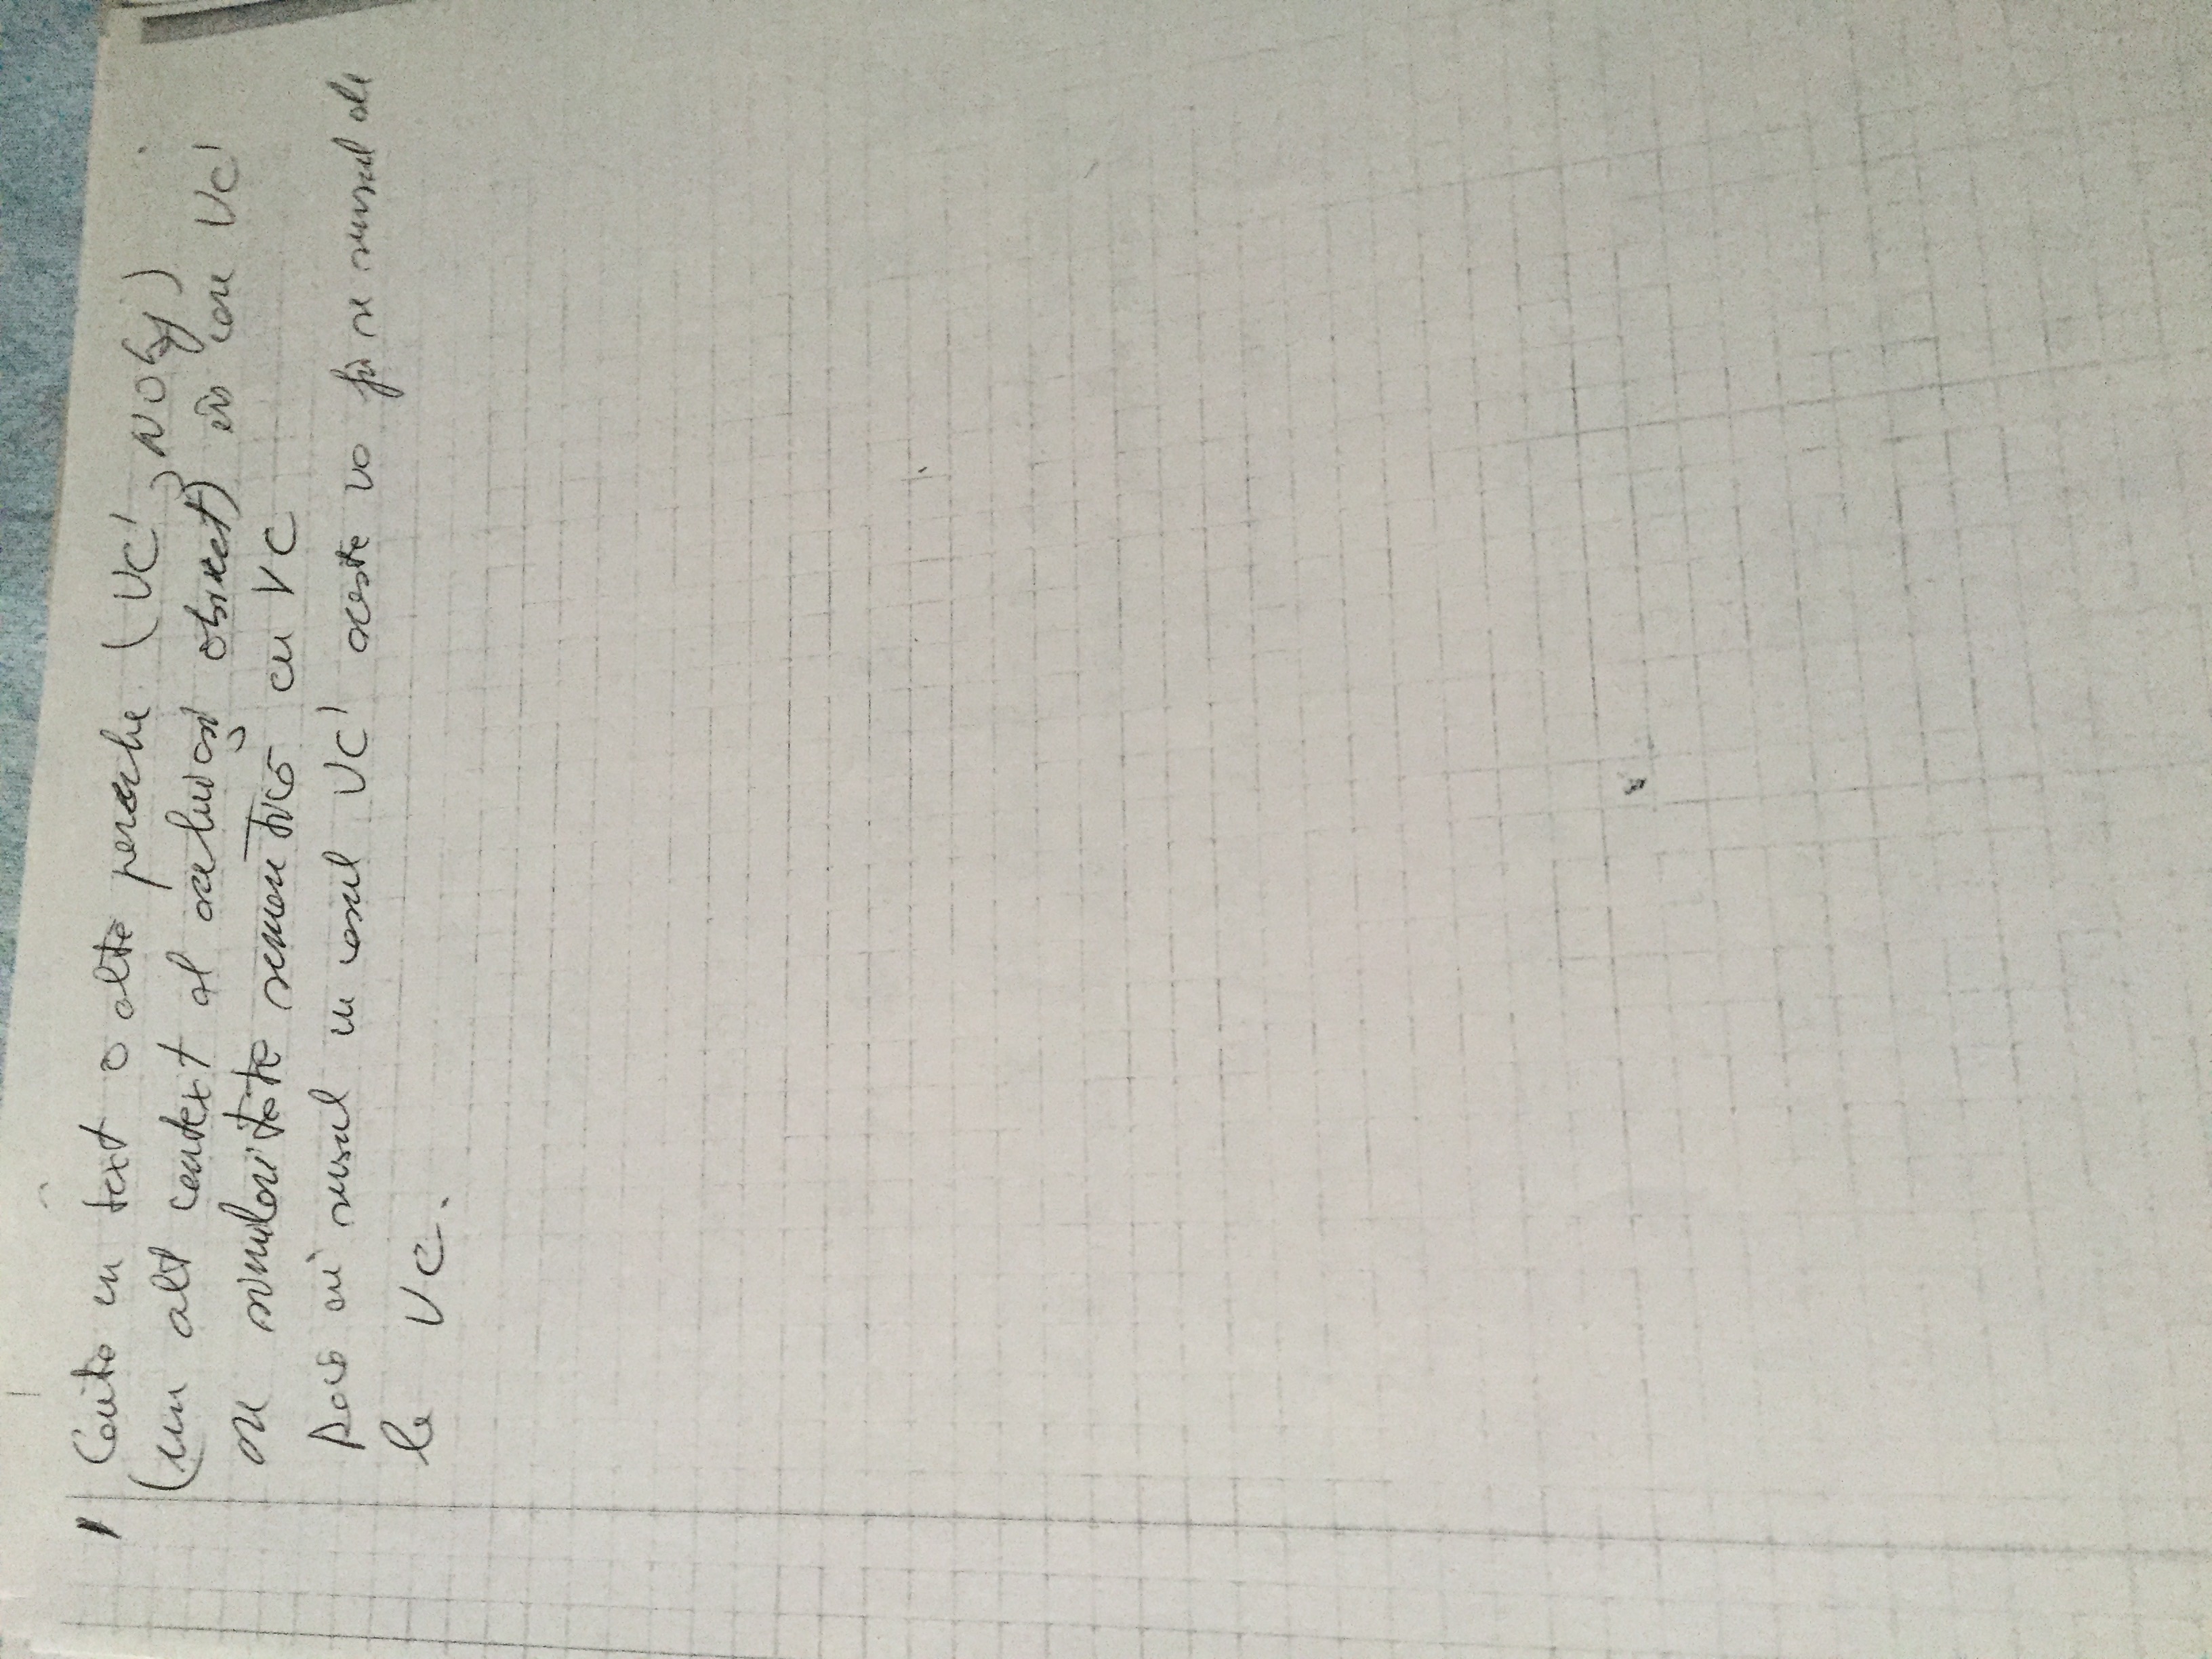 1 Caută în text o altă pereche (VC', NObj)
(un alt context al aceluiași obiect) în care VC'
are similaritate semantică cu VC
Dacă ai sensul în cazul VC' acesta va fi și sensul de
la VC.